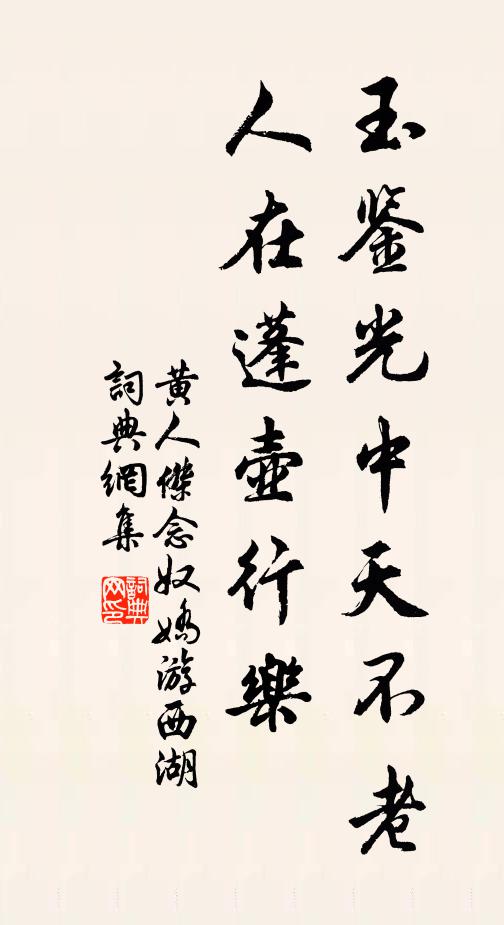 玉鉴光中天不老
人在蓬壺行樂
黄人傑念奴嬌游西湖
詞典網集
詞典
网印